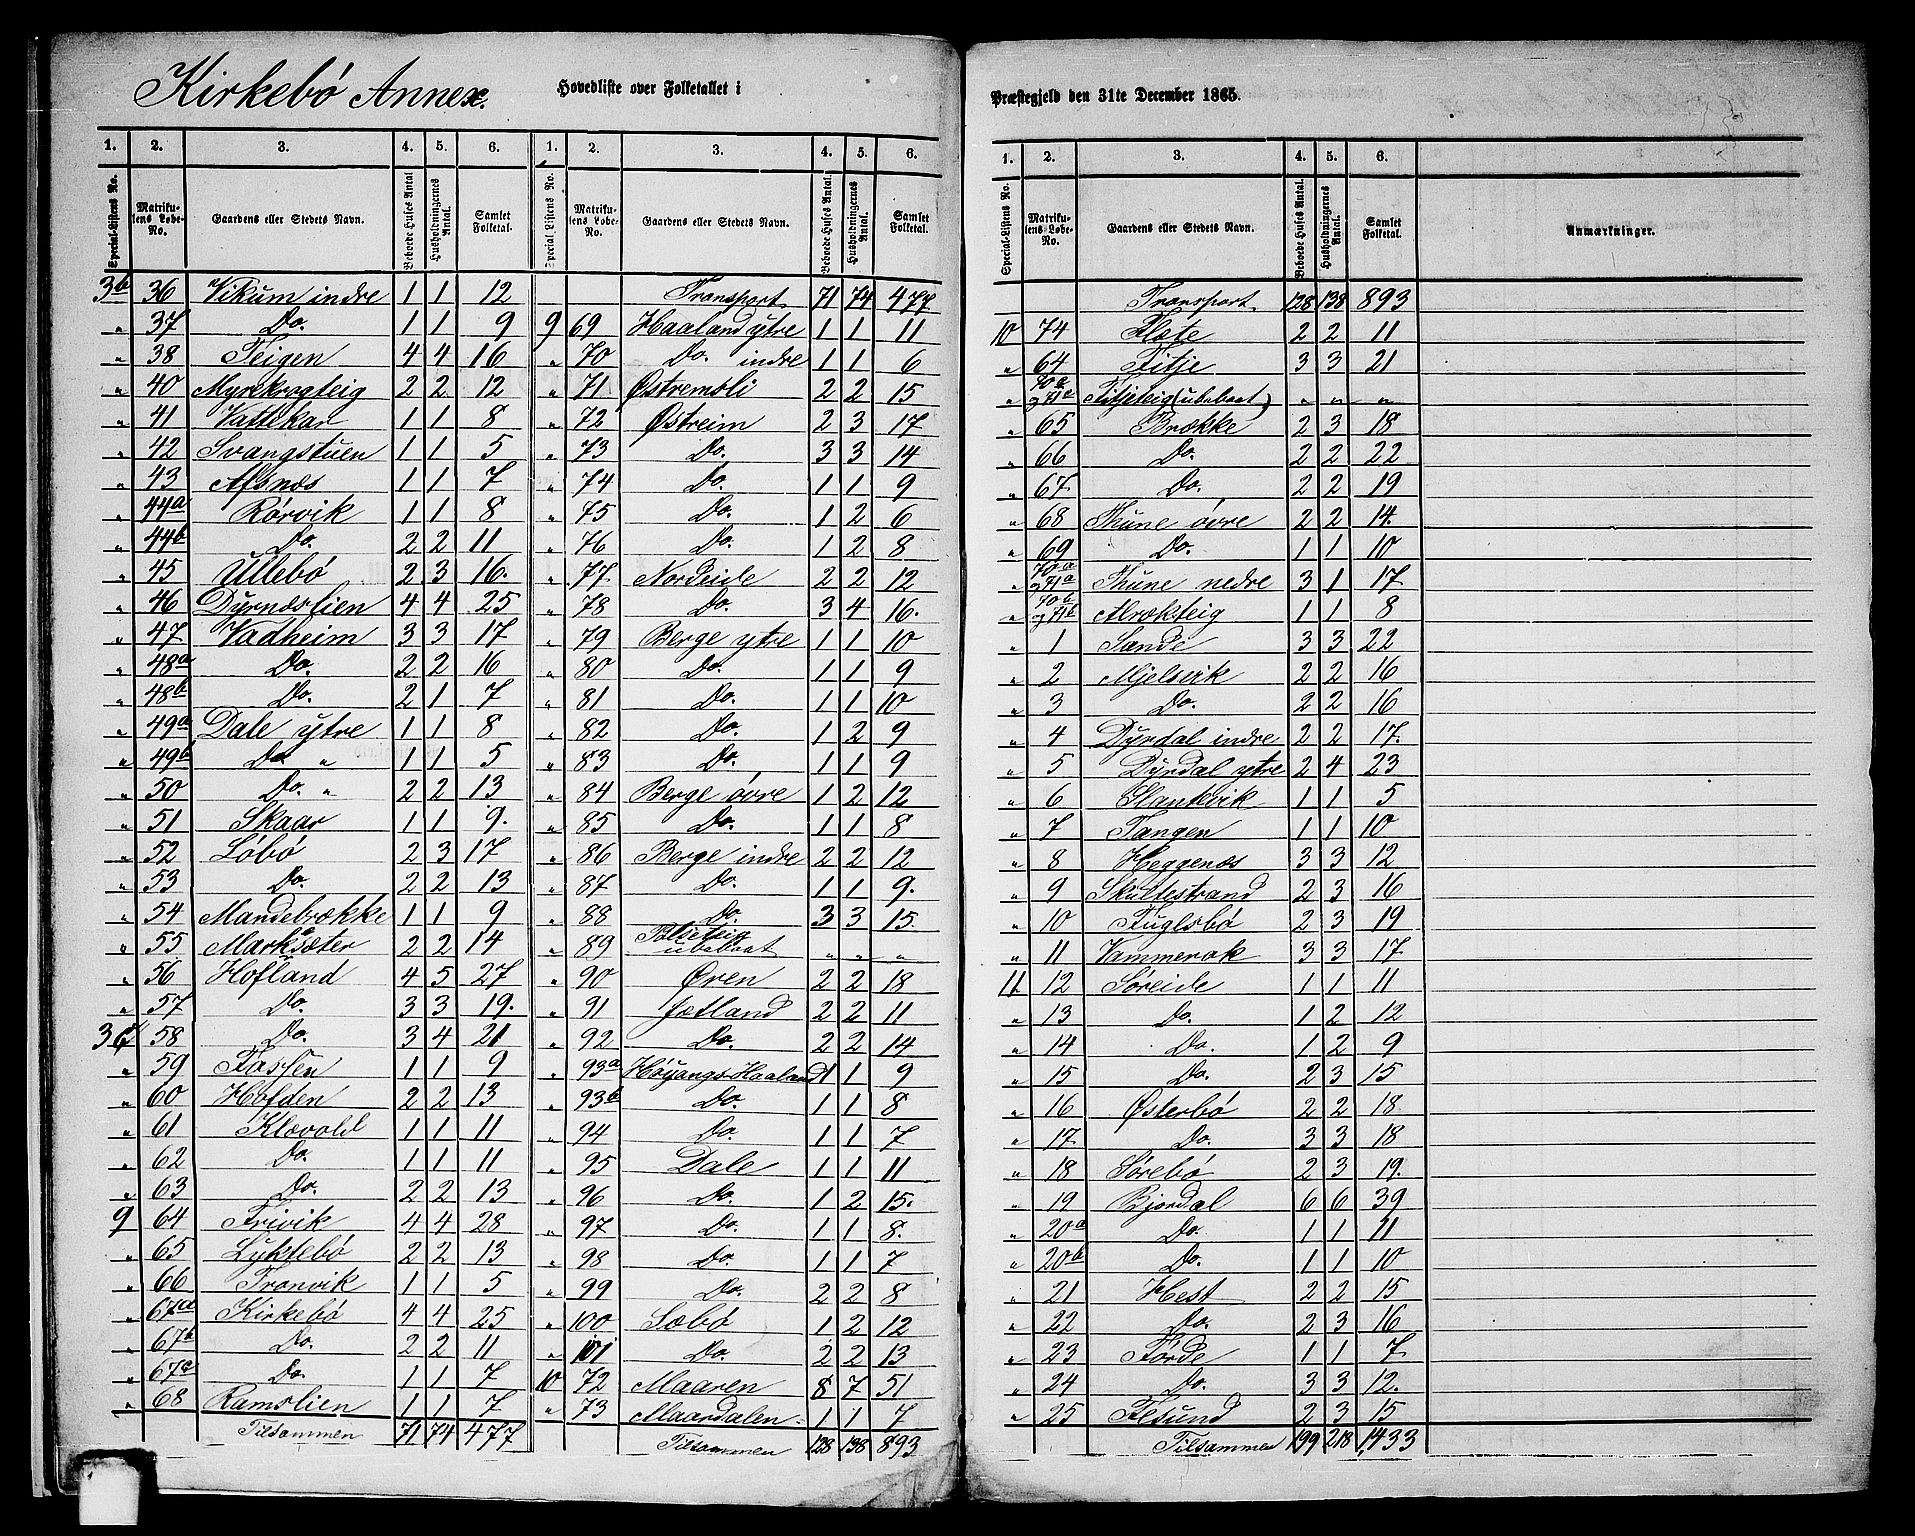 Kirkebö Annex.
Hovedliste over Folketallet i
Præstegjeld den 31te December 1865.
1. 2. 3. 4. 5. 6. 1. 2. 3. 4. 5. 6.
Special-Listens No. Matrikulens Løbe-No. Gaardens eller Stedets Navn. Beboede Huses Antal Husholdningernes Antal. Samlet Folketal. Special Listens No. Matrikulens Løbe-No. Gaardens eller Stedets Navn. Beboede Huses Antal. Husholdningernes Antal. Samlet Folketal.
3b 36 Vikum indre 1 1 12
„ 37 Do. 1 1 9
„ 38 Teigen 4 4 16
„ 40 Myrekrogteig 2 2 12
„ 41 Vattekar 1 1 8
„ 42 Svangstuen 1 1 5
„ 43 Afsnæs 1 1 7
„ 44a Rörvik 1 1 8
„ 44b Do. 2 2 11
„ 45 Ullebö 2 3 16.
„ 46 Dyrnæslien 4 4 25
„ 47 Vadheim 3 3 17
„ 48a Do. 2 2 16
„ 48b Do. 2 1 7
„ 49a Dale ytre 1 1 8
„ 49b Do „ 1 1 5
„ 50 Do. „ 2 2 13
„ 51 Skaar 1 1 9.
„ 52 Löbö 2 3 17
„ 53 Do. 2 2 13
„ 54 Mandebrække 1 1 9
„ 55 Marksæter 2 2 14
„ 56 Hofland 4 5 27
„ 57 Do. 3 3 19.
58 Do. 3 4 21
„ 59 1 1 9
„ 60 Holden 2 2 13
„ 61 Klævold 1 1 11
„ 62 Do. 1 1 11
„ 63 Do. 2 2 13
9 64 Frivik 4 4 28
„ 65 Lyktebö 2 2 13
„ 66 Tronvik 1 1 5
„ 67a Kirkebö 4 4 25
„ 67b Do. 2 2 11
„ 67c Do. 1 1 7
„ 68 Ramslien 1 1 7
Tilsammen 71 74 477
Transport 71 74 477
9 69 Haaland ytre 1 1 11
„ 70 Do. indre 1 1 6
„ 71 Östremsli 2 2 15
„ 72 Östreim 2 3 17
„ 73 Do. 3 3 14
„ 74 Do. 1 1 9
„ 75 Do. 1 2 6
„ 76 Do. 1 2 8
„ 77 Nordeide 2 2 12
„ 78 Do. 3 4 16.
„ 79 Berge ytre 1 1 10
„ 80 Do. 1 1 9
„ 81 Do. 1 1 10
„ 82 Do. 1 2 9
„ 83 Do. 1 1 9
„ 84 Berge övre 1 2 12
„ 85 Do. 1 1 8
„ 86 Berge indre 2 2 12
„ 87 Do. 1 1 9.
„ 88 Do. 3 3 15.
„ 89 ubeboet „ „ „
„ 90 Ören 2 2 18
„ 91 Jætland 2 2 11
„ 92 Do. 2 2 14
„ 93a Höyangs Haaland 1 1 9
„ 93b Do. 1 1 8
„ 94 Do. 1 1 7
„ 95 Dale 1 1 11
„ 96 Do. 1 2 15.
„ 97 Do. 1 1 8.
„ 98 Do. 1 1 7
„ 99 Do. 2 2 8
„ 100 Sæbö 1 2 12
„ 101 Do. 2 2 13
10 72 Maaren 8 7 51
„ 73 Maardalen 1 1 7
Tilsammen 128 138 893
1. 2. 3. 4. 5. 6.
Special-Listens No. Matrikulens Løbe-No. Gaardens eller Stedets Navn. Beboede Huses Antal. Husholdningernes Antal. Samlet Folketal. Anmærkninger.
Transport 128 138 893
10 74 Flæte 2 2 11
„ 64 Fitje 3 3 21
„ 70a og 71a Fitjeteig (ubeboet) „ „ „
„ 65 Brække 2 3 18
„ 66 Do. 2 2 22
„ 67. Do. 2 2 19
„ 68 Thune övre 2 2 14.
„ 69 Do. 1 1 10
„ 70a og 71a Thune nedre 3 1 17
„ 70b og 71b Alrækteig 1 1 8
„ 1 Sande 3 3 22
„ 2 Mjelsvik 2 2 16
„ 3 Do. 2 2 16
„ 4 Dyrdal indre 2 2 17.
„ 5 Dyrdal ytre 2 4 23
„ 6 Slantevik 1 1 5
„ 7 Tangen 1 1 10
„ 8 Heggenæs 3 3 12
„ 9 Skultestrand 2 3 16
„ 10 Fuglsbö 2 3 19
„ 11 Vammerak 3 3 17
11 12 Söreide 1 1 11
„ 13 Do. 1 2 12
„ 14 Do. 1 2 9
„ 15 Do. 2 3 15
„ 16 Österbö 2 2 18.
„ 17. Do. 3 3 18
„ 18 Sörebö 2 3 19.
„ 19 Bjordal 6 6 39
„ 20a Do. 1 1 11
„ 20b Do. 1 1 10
„ 21 Hest 2 2 15
„ 22 Do. 2 3 16
„ 23 Förde 1 1 7
„ 24 Do. 3 3 12.
„ 25 Flesund 2 3 15
Tilsammen 199 218 1433